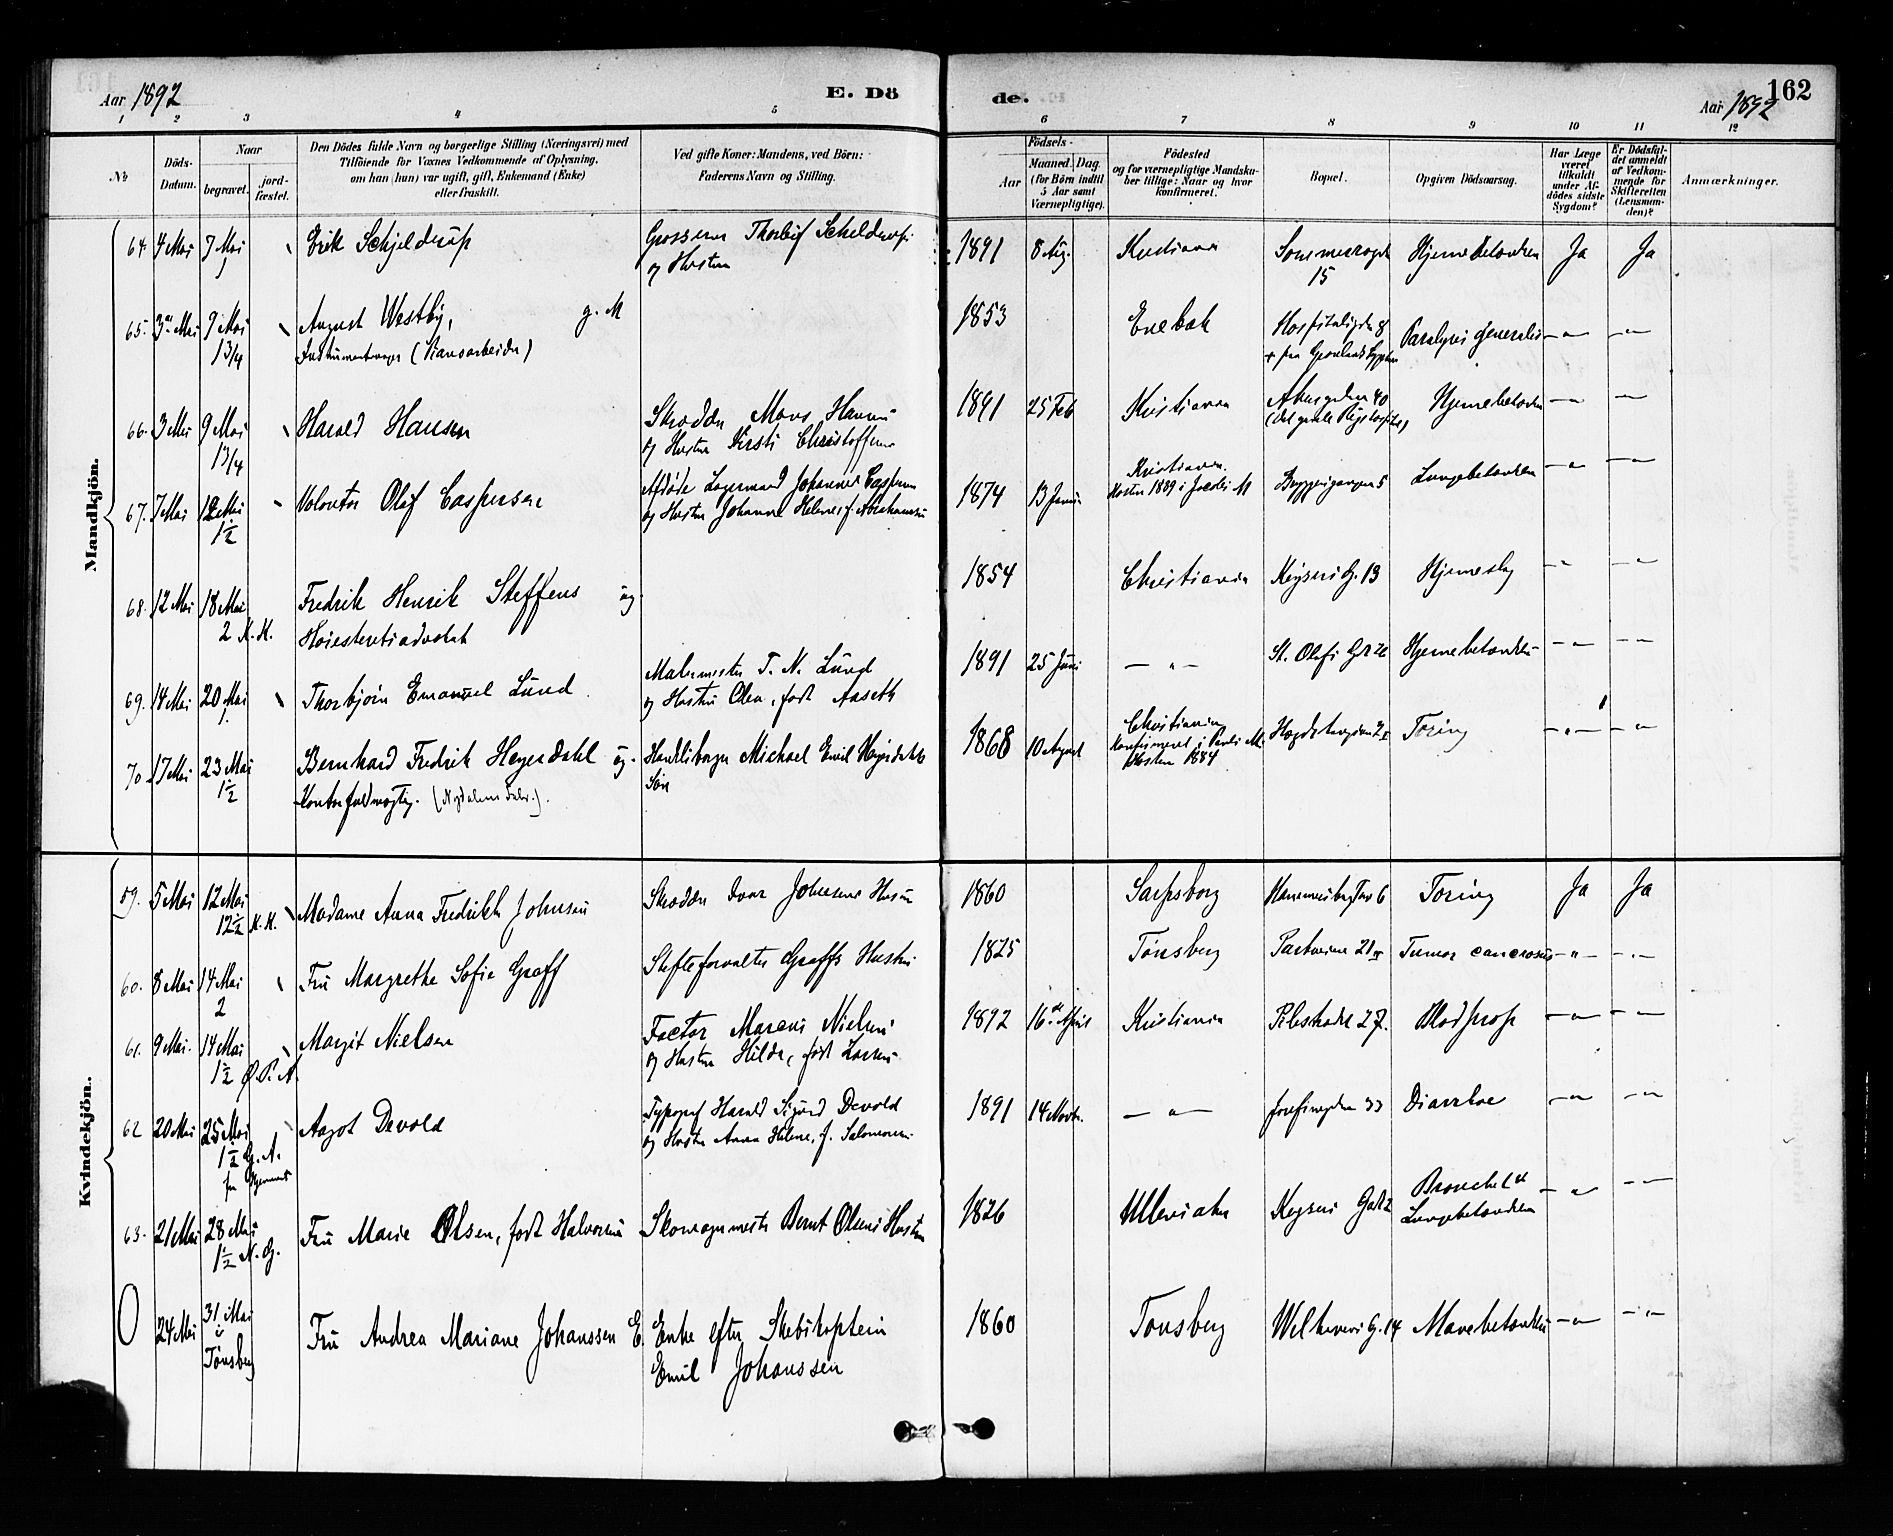 Aar 1892
E. Dö
1 2 3 4 5
№
Döds-
Datum.
Naar
begravet.
jord-
fæstet.
Den Dödes fulde Navn og borgerlige Stilling (Næringsvei) med
Tilföiende for Voxnes Vedkommende af Oplysning,
om han (hun) var ugift, gift, Enkemand (Enke)
eller fraskilt.
Ved gifte Koner: Mandens, ved Börn:
Faderens Navn og Stilling.
Mandkjön.
64. 4 Mai 7 Mai Erik Schjelderup Grosserer Thorleif Schelderup
og Hustru
65. 3 Mai 9 Mai August Westby, g. M
13/4 Instrumentmager
66. 3 Mai 9 Mai Harald Hansen Skrædder Hansen
13/4 og Hustru Kirsti Christoffersen
67. 7 Mai 12 Mai Volontør Olaf Caspersen Afdøde Johannes Caspersen
1½ og Hustru Johanne Helene, f. Abrahamsen
68. 12 Mai 18 Mai Fredrik Henrik Steffens ug
2 K. K. Høiesteretsadvokat
69. 14 Mai 20 Mai Thorbjørn Emanuel Lund Malermester T. N. Lund
og Hustru Olea, født Aaseth
70. 17 Mai 23 Mai Bernhard Fredrik Heyerdahl ug. Handelsborger Michael Emil Heyerdahls
1½ Kontorfuldmægtig. (Nydalens Fabr.). Søn
Kvindekjön.
59. 5 Mai 12 Mai Madame Anna Fredrikke Johnsen Skrædder Ivar Johnsens Hustru
12½ K. K.
60. 8 Mai 14 Mai Fru Margrethe Sofie Graff Stiftsforvalter Graffs Hustru
2
61. 9 Mai. 14 Mai Margit Nielsen Factor Marcus Nielsen
1½ og Hustru Hilda, født Larsen
62 20 Mai 25 Mai Aagot Devold Typograf Harald Sigurd Devold
1½ og Hustru Anna Helene, f. Salomonsen
fra Hjemmet
63. 21 Mai 28 Mai Fru Marie Olsen, født Halvorsen Skomagermester Bernt Olsens Hustru
1½ N. G.
0 24 Mai 31 Mai Fru Andrea Mariane Johanssen E. Enke efter Skibskaptein
i Tønsberg Emil Johanssen
de.
162
Aar 1892
6 7 8 9 10 11 12
Födsels-
Aar
Maaned. Dag.
(for Börn indtil
5 Aar samt
Værnepligtige).
Födested
og for værnepligtige Mandska-
ber tillige: Naar og hvor
konfirmeret.
Bopæl.
Opgiven Dödsaarsag.
Har Læge
været
tilkaldt
under Af-
dödes sidste
Sygdom?
Er Dödsfal-
det anmeldt
af Vedkom-
mende for
Skifteretten
(Lensman-
den)?
Anmærkninger.
1891 8 Aug. Kristiania 15 Hjernebetændelse Ja Ja
1853 Enebak Hospitalsgden 8 Paralysis generalis — " — — " —
1891 25 Feb Kristiania Akersgaden 40 Hjernebetændelse — " — — " —
(det gamle Rigshospital)
1874 13 Januar Kristiania. Bryggerigangen 5 Lungebetændelse — " — — " —
Høsten 1889 i Jacobs M
1854 Christiania Keysers G. 13 Hjerneslag — " — — " —
1891 25 Juni — " — St. Olafs Hjernebetændelse — " — — " —
1868 10 August Christiania Tæring — " — — " —
Konfirmeret i Pauls M.
Høsten 1884
1860 Sarpsborg 6 Tæring Ja Ja
1825 Tønsberg Parkveien 21 Tumor cancrosus — " — — " —
1892 16de April Kristiania Pilestrædet 27. Blodprop — " — — " —
1891 14 Novbr. — " — Josefinegden 33 Diarrhoe — " — — " —
1826 Ullensaker Keysers Gade 2 Bronchit &
Lungebetændelse — " — — " —
1860 Tønsberg Welhavens G. 14 Mavebetændelse — " — — " —